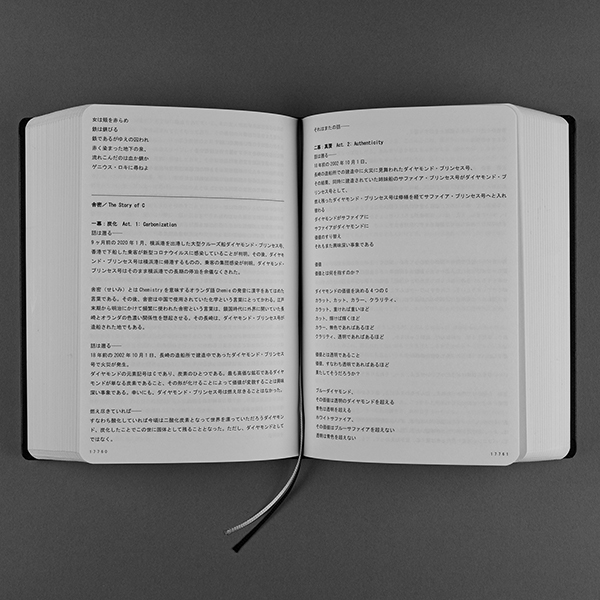 女は頬を赤らめ
鉄は錆びる
鉄であるがゆえの囚われ
赤く染まった地下の泉。
流れこんだのは血か鉄か
ゲニウス・ロキに尋ねよ
舎密／The Story of C
一幕：炭化 Act. 1: Carbonization
話は遡る──
9ヶ月前の2020年1月、横浜港を出港した大型クルーズ船ダイヤモンド・プリンセス号。
香港で下船した乗客が新型コロナウイルスに感染していることが判明。その後、ダイヤモ
ンド・プリンセス号は横浜港に帰港するものの、乗客の集団感染が判明、ダイヤモンド・
プリンセス号はそのまま横浜での長期の停泊を余儀なくされた。
舎密（せいみ）とはChemistryを意味するオランダ語Chemieの発音に漢字をあてはめた
言葉である。その後、舎密は中国で使用されていた化学という言葉にとってかわる。江戸
末期から明治にかけて頻繁に使われた舎密という言葉は、鎖国時代に外界に開いていた長
崎とオランダの色濃い関係性を想起させる。その長崎は、ダイヤモンド・プリンセス号が
造船された地でもある。
話は遡る──
18年前の2002年10月1日、長崎の造船所で建造中であったダイヤモンド・プリンセス
号で火災が発生。
ダイヤモンドの元素記号はCであり、炭素のひとつである。最も高価な鉱石であるダイヤ
モンドが単なる炭素であること、その形が化けることによって価値が変貌することは興味
深い事象である。幸いにも、ダイヤモンド・プリンセス号は燃え尽きることはなかった。
燃え尽きていれば──
すなわち酸化していれば今頃は二酸化炭素となって世界を漂っていただろうダイヤモン
ド、炭化したことでこの世に固体として残ることとなった。ただし、ダイヤモンドとして
ではなく。
17780
それはまたの話──
二幕：真贋 Act. 2: Authenticity
話は遡る──
18年前の2002年10月1日、
長崎の造船所での建造中に火災に見舞われたダイヤモンド・プリンセス号、
その結果、同時に建造されていた姉妹船のサファイア・プリンセス号がダイヤモンド・プ
リンセス号として、
燃え残ったダイヤモンド・プリンセス号は修繕を経てサファイア・プリンセス号へと入れ
替わる
ダイヤモンドがサファイアに
サファイアがダイヤモンドに
価値のすり替え
それもまた興味深い事象である
価値
価値とは何を指すのか？
ダイヤモンドの価値を決める4つのC
カラット、カット、カラー、クラリティ。
カラット、重ければ重いほど
カット、輝けば輝くほど
カラー、無色であればあるほど
クラリティ、透明であればあるほど
価値とは透明であること
価値、すなわち透明であればあるほど
果たしてそうだろうか？
ブルーダイヤモンド、
その価値は透明のダイヤモンドを超える
青色は透明を超える
ホワイトサファイア、
その価値はブルーサファイアを超えない
透明は青色を超えない
17781